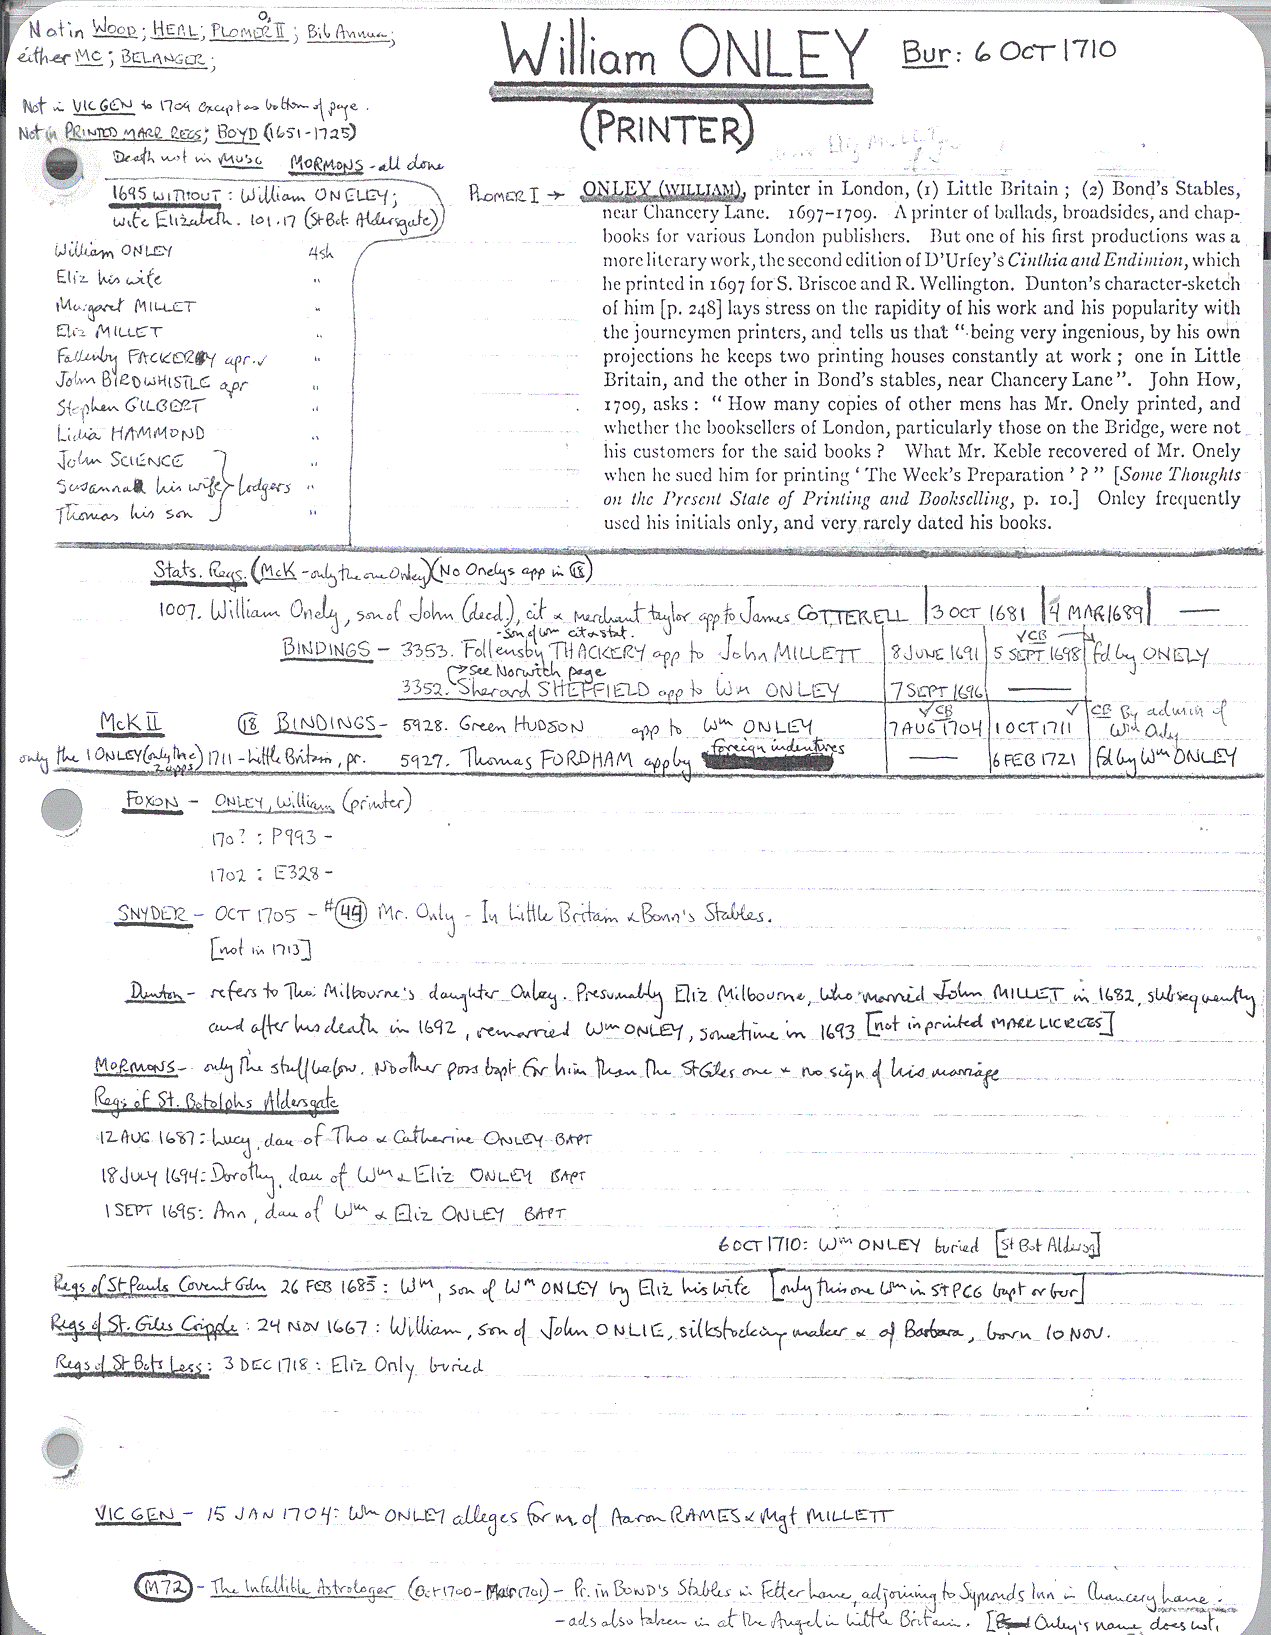 Not in WOOD; HEAL; PLOMER II; Bib Annua;
either MC; BELANGER;
William ONLEY Bur: 6 OCT 1710
(PRINTER)
Not in VIC GEN to 1709 except as bottom of page.
Not in PRINTED MARR REGS; BOYD (1651-1725)
Death not in MUSG MORMONS - all done
1695 WITHOUT: William ONELEY;
wife Elizabeth. 101.17 (St Bot. Aldersgate)
William ONLEY 4sh
Eliz his wife "
Margaret MILLET "
Eliz MILLET "
Fallenby FACKERBY apr. "
John BIRDWHISTLE apr "
Stephen GILBERT "
Lidia HAMMOND "
John SCIENCE "
Susannah his wife } lodgers "
Thomas his son "
PLOMER I → ONLEY (WILLIAM), printer in London, (1) Little Britain; (2) Bond's Stables,
near Chancery Lane. 1697-1709. A printer of ballads, broadsides, and chap-
books for various London publishers. But one of his first productions was a
more literary work, the second edition of D'Urfey's Cinthia and Endimion, which
he printed in 1697 for S. Briscoe and R. Wellington. Dunton's character-sketch
of him [p. 248] lays stress on the rapidity of his work and his popularity with
the journeymen printers, and tells us that "being very ingenious, by his own
projections he keeps two printing houses constantly at work; one in Little
Britain, and the other in Bond's stables, near Chancery Lane". John How,
1709, asks: "How many copies of other mens has Mr. Onely printed, and
whether the booksellers of London, particularly those on the Bridge, were not
his customers for the said books? What Mr. Keble recovered of Mr. Onely
when he sued him for printing 'The Week's Preparation'?" [Some Thoughts
on the Present State of Printing and Bookselling, p. 10.] Onley frequently
used his initials only, and very rarely dated his books.
Stats. Regs. (McK - only the one Onley) (No Onelys app in 18)
1007. William Onely, son of John (decd.), cit & merchant taylor app to James COTTERELL 3 OCT 1681 4 MAR 1689 —
- son of Wm cit & stat.
BINDINGS - 3353. Follensby THACKERY app to John MILLETT 8 JUNE 1691 ✓CB 5 SEPT 1698 fd by ONELY
→ see Norwich page
3352. Sherard SHEFFIELD app to Wm ONLEY 7 SEPT 1696 —
McK II 18 BINDINGS - 5928. Green HUDSON app to Wm ONLEY ✓CB 7 AUG 1704 1 OCT 1711 ✓ CB By admin of Wm Only
only the 1 ONLEY (only the 2 apps) 1711 - Little Britain, pr. 5927. Thomas FORDHAM app by foreign indentures — 6 FEB 1721 fd by Wm ONLEY
FOXON - ONLEY, William (printer)
170? : P993 -
1702 : E328 -
SNYDER - OCT 1705 - #44 Mr. Only - In Little Britain & Bonn's Stables.
[not in 1713]
Dunton - refers to Tho: Milbourne's daughter Onley. Presumably Eliz Milbourne, who married John MILLET in 1682, subsequently
and after his death in 1692, remarried Wm ONLEY, sometime in 1693 [not in printed MARR LIC REGS]
MORMONS - only the stuff below. No other poss bapt for him than the St Giles one & no sign of his marriage
Regs of St. Botolphs Aldersgate
12 AUG 1687: Lucy, dau of Tho & Catherine ONLEY BAPT
18 JULY 1694: Dorothy, dau of Wm & Eliz ONLEY BAPT
1 SEPT 1695: Ann, dau of Wm & Eliz ONLEY BAPT
6 OCT 1710: Wm ONLEY buried [St Bot Aldersg]
Regs of St Pauls Covent Gdn 26 FEB 1685: Wm, son of Wm ONLEY by Eliz his wife [only this one Wm in St PCG bapt or bur]
Regs of St. Giles Cripple: 24 NOV 1667: William, son of John ONLIE, silkstocking maker & of Barbara, born 10 NOV.
Regs of St Bots Less: 3 DEC 1718: Eliz Only buried
VIC GEN - 15 JAN 1704: Wm ONLEY alleges for m. of Aaron RAMES & Mgt MILLETT
M72 - The Infallible Astrologer (Oct 1700 - Mar 1701) - Pr. in BOND's Stables in Fetter Lane, adjoining to Symonds Inn in Chancery Lane.
- ads also taken in at the Angel in Little Britain. [Onley's name does not,